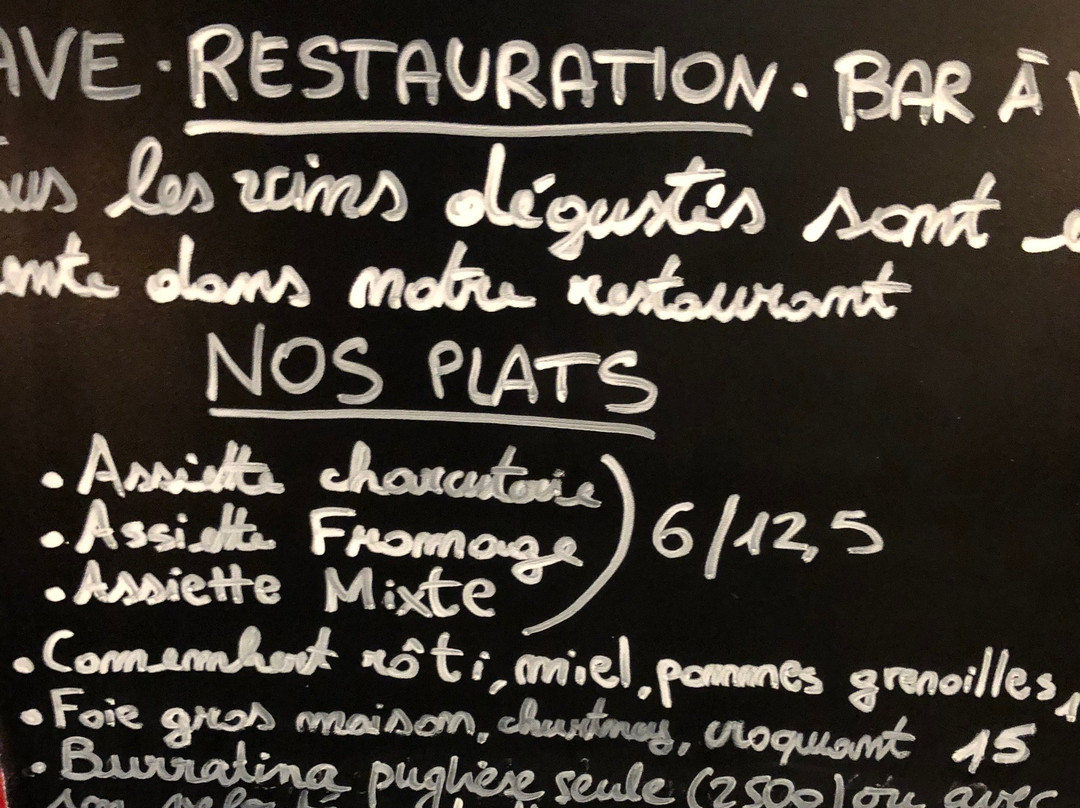 AVE · RESTAURATION · BAR À V
ous les vins dégustés sont e
ente dans notre restaurant
NOS PLATS
• Assiette charcuterie
• Assiette Fromage
• Assiette Mixte
) 6/12,5
• Camembert rôti, miel, pommes grenoilles, 1
• Foie gras maison, chutney, croquant 15
• Burratina pugliese seule (250g) ou avec
son